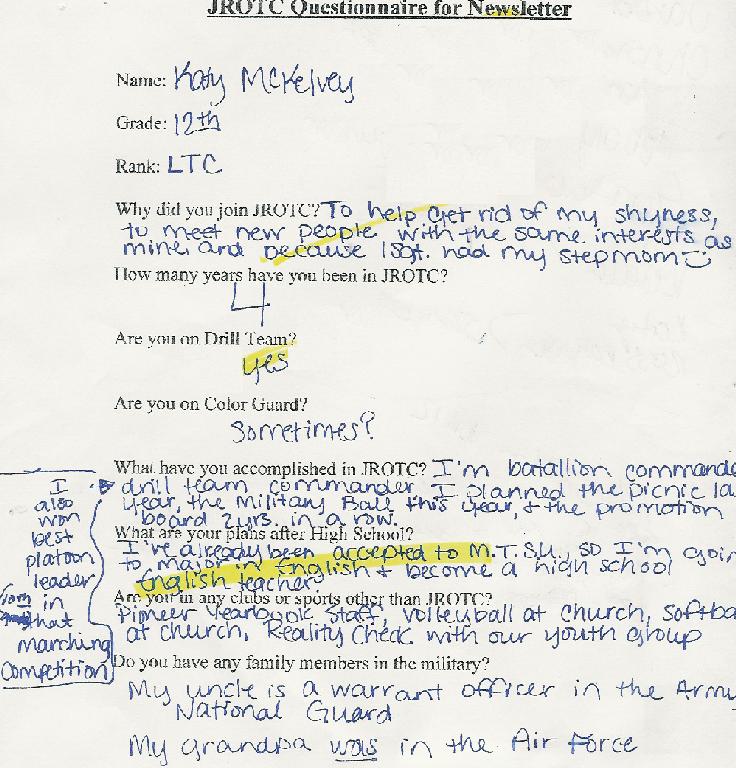 JROTC Questionnaire for Newsletter
Name: Katy McKelvey
Grade: 12th
Rank: LTC
Why did you join JROTC? To help get rid of my shyness,
to meet new people with the same interests as
mine, and because 1Sgt. had my stepmom
How many years have you been in JROTC?
4
Are you on Drill Team?
yes
Are you on Color Guard?
Sometimes?
What have you accomplished in JROTC? I'm batallion commande
drill team commander I planned the picnic la
year, the Military Ball this year, & the promotion
board 2yrs. in a row.
I
also
won
best
platoon
leader
from in
that
marching
competition
What are your plans after High School?
I've already been accepted to M.T.S.U., so I'm goin
to major in English & become a high school
English teacher.
Are you in any clubs or sports other than JROTC?
Pioneer Yearbook Staff, volleyball at church, softba
at church, Reality Check with our youth group
Do you have any family members in the military?
My uncle is a warrant officer in the Army
National Guard
My grandpa was in the Air Force